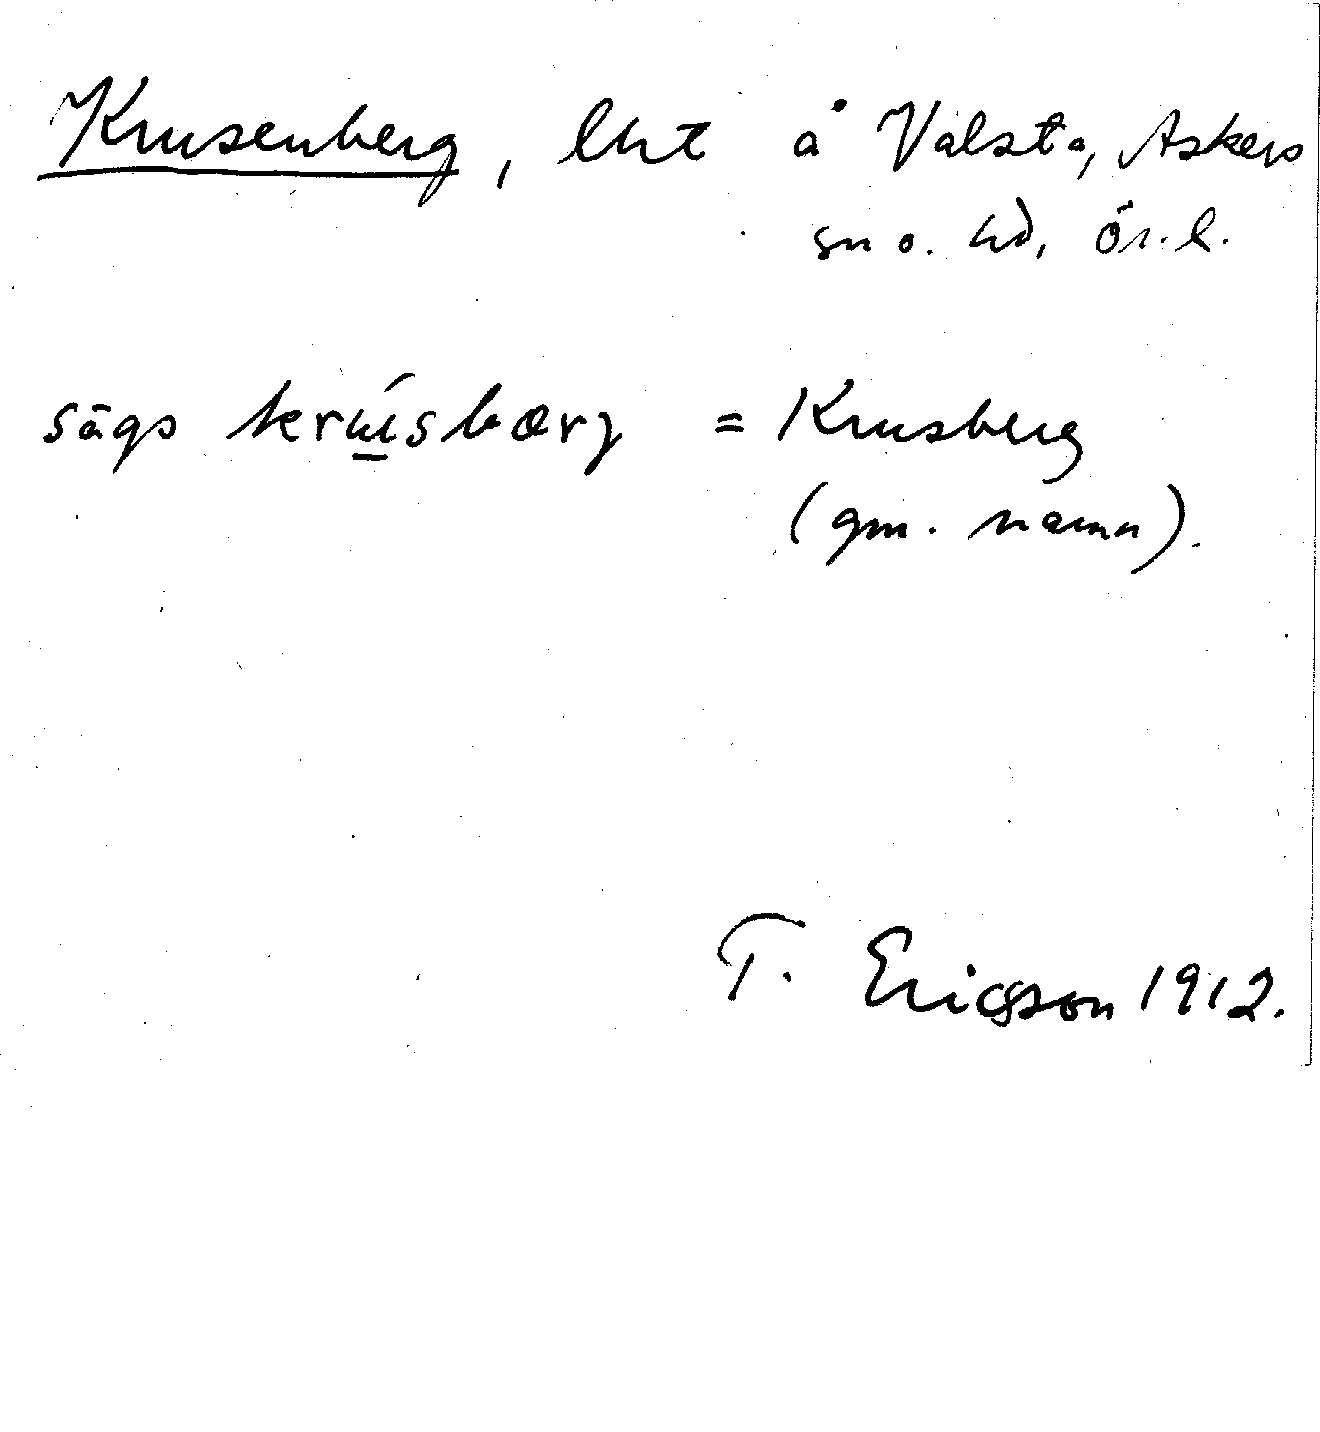 Krusenberg, lht å Valsta, Askers
sn o. hd, Ör. l.
sägs krúsbærj = Krusberg
(gm. namn).
T. Ericsson 1912.